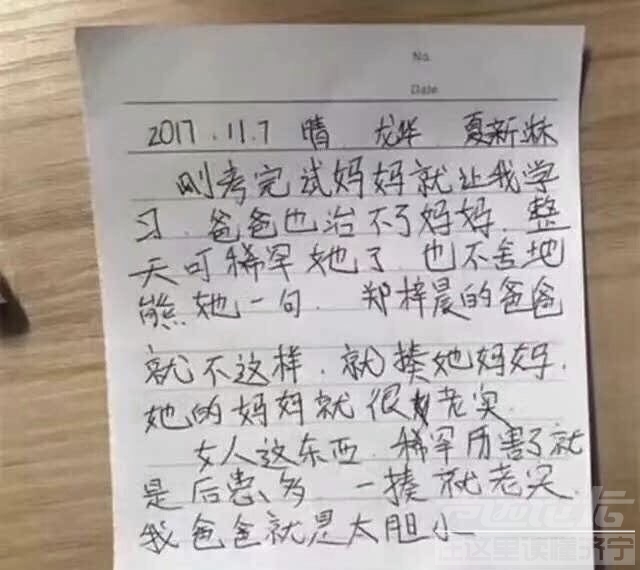 No.
Date
2017.11.7 晴 龙华 夏新
刚考完试妈妈就让我学
习.爸爸也治不了妈妈.整
天可稀罕她了.也不舍地
熊她一句. 郑梓晨的爸爸
就不这样.就揍她妈妈.
她的妈妈就很老实
女人这东西.稀罕历害了就
是后患多 一揍就老实.
我爸爸就是太胆小
在这里读懂济宁